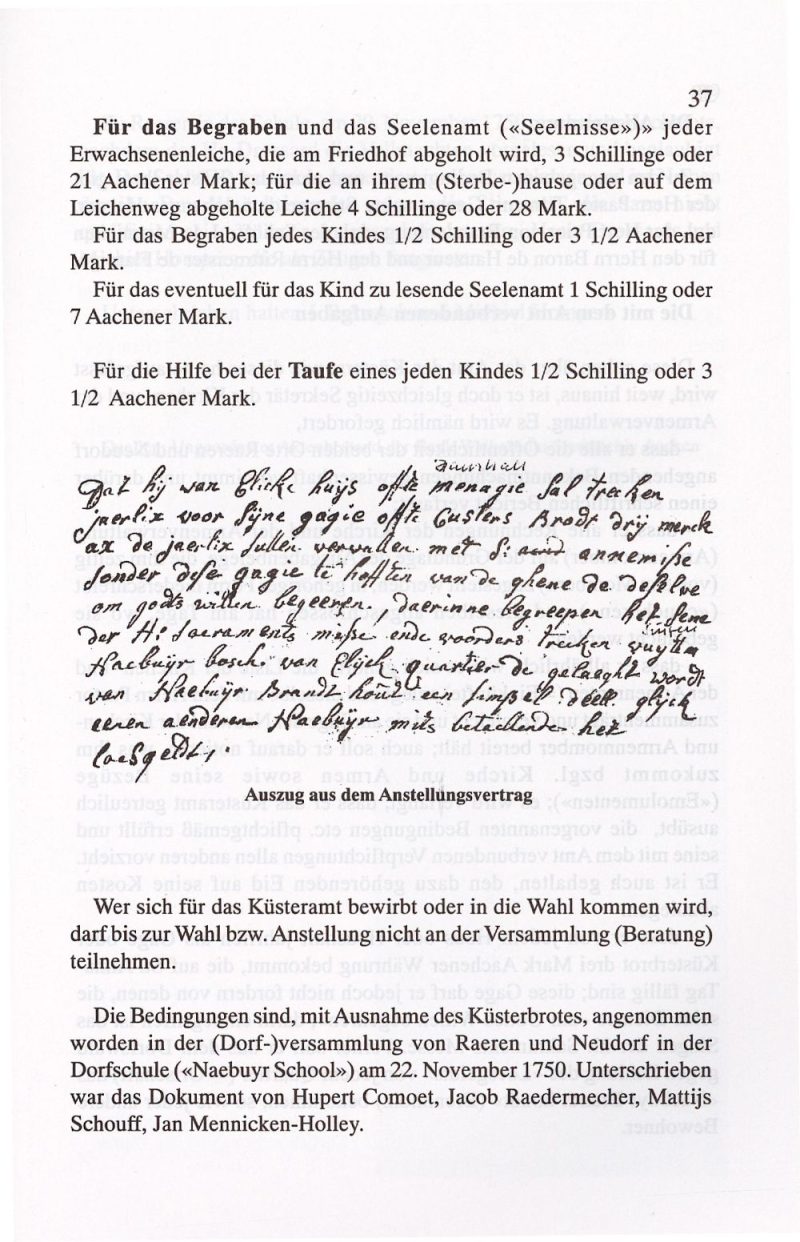 37
Für das Begraben und das Seelenamt («Seelmisse»)» jeder
Erwachsenenleiche, die am Friedhof abgeholt wird, 3 Schillinge oder
21 Aachener Mark; für die an ihrem (Sterbe-)hause oder auf dem
Leichenweg abgeholte Leiche 4 Schillinge oder 28 Mark.
Für das Begraben jedes Kindes 1/2 Schilling oder 3 1/2 Aachener
Mark.
Für das eventuell für das Kind zu lesende Seelenamt 1 Schilling oder
7 Aachener Mark.
Für die Hilfe bei der Taufe eines jeden Kindes 1/2 Schilling oder 3
1/2 Aachener Mark.
Dat hij van Elicke huijs ofte menagie sal trecken
jaerlix voor sijne gagie ofte Custers Brodt drij merck
ax de jaerlix sullen vervallen met St.
sonder dese gagie te van de ghene de deselve
om godts willen begeeren, daerinne begreepen het
der H: Sacraments misse ende voorders trecken vuijtten
Naebuijr bosch van Elijck quartier de gelaeght wordt
van Naebuijr Brandt hout een simpel deel glijck
eenen aenderen Naebuijr mits betaelende het
loesgeldt;
Auszug aus dem Anstellungsvertrag
Wer sich für das Küsteramt bewirbt oder in die Wahl kommen wird,
darf bis zur Wahl bzw. Anstellung nicht an der Versammlung (Beratung)
teilnehmen.
Die Bedingungen sind, mit Ausnahme des Küsterbrotes, angenommen
worden in der (Dorf-)versammlung von Raeren und Neudorf in der
Dorfschule («Naebuyr School») am 22. November 1750. Unterschrieben
war das Dokument von Hupert Comoet, Jacob Raedermecher, Mattijs
Schouff, Jan Mennicken-Holley.